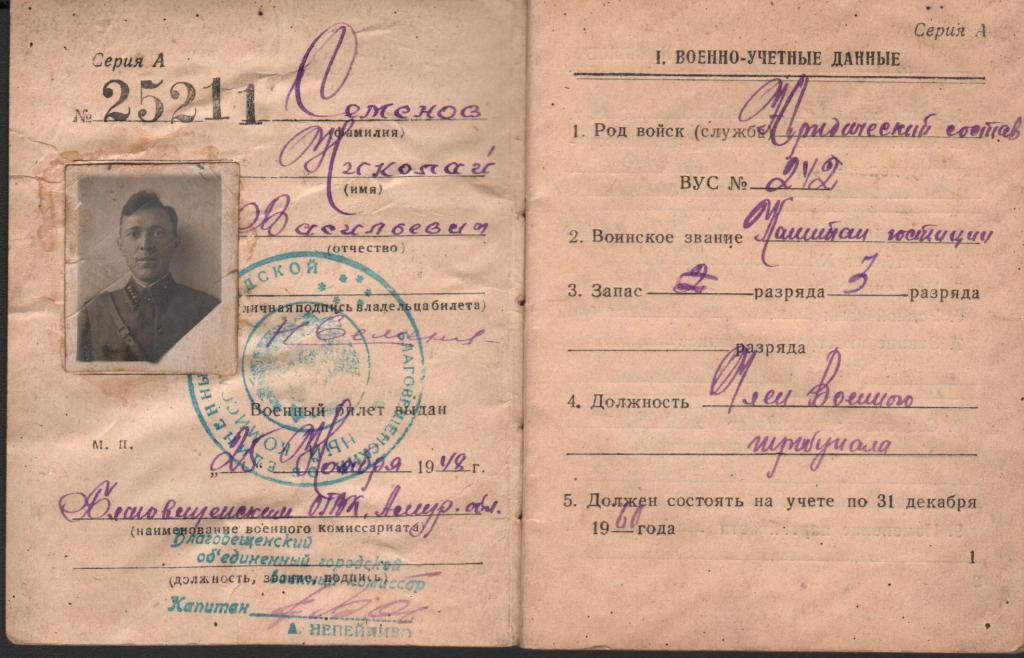 Серия А
№ 25211
Семенов
(фамилия)
Николай
(имя)
Васильевич
(отчество)
личная подпись владельца билета)
Н Семенов
ГОРОДСКОЙ БЛАГОВЕЩЕНСКИЙ
Военный билет выдан
М. П.
„25“ Ноября 1948 г.
Благовещенским ОГВК, Амур. обл.
(наименование военного комиссариата)
Благовещенский
об'единенный городской
военный комиссар
(должность, звание, подпись)
Капитан
А. НЕПЕЙПИВО
Серия А
I. ВОЕННО-УЧЕТНЫЕ ДАННЫЕ
1. Род войск (служба) Юридический состав
ВУС № 242
2. Воинское звание Капитан юстиции
3. Запас 2 разряда 3 разряда
разряда
4. Должность Член Военного
трибунала
5. Должен состоять на учете по 31 декабря
1960 года
1